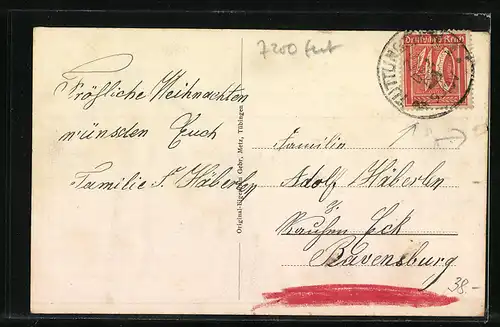 7200 fent
Fröhliche Weihnachten
wünschen Euch
Familie F. Häberlen
Original-Eigentum Gebr. Metz, Tübingen
Deutsches Reich
40
TUTTLINGEN
Familie
Adolf Häberlen
z.
Rauhen Eck
Ravensburg
38.-